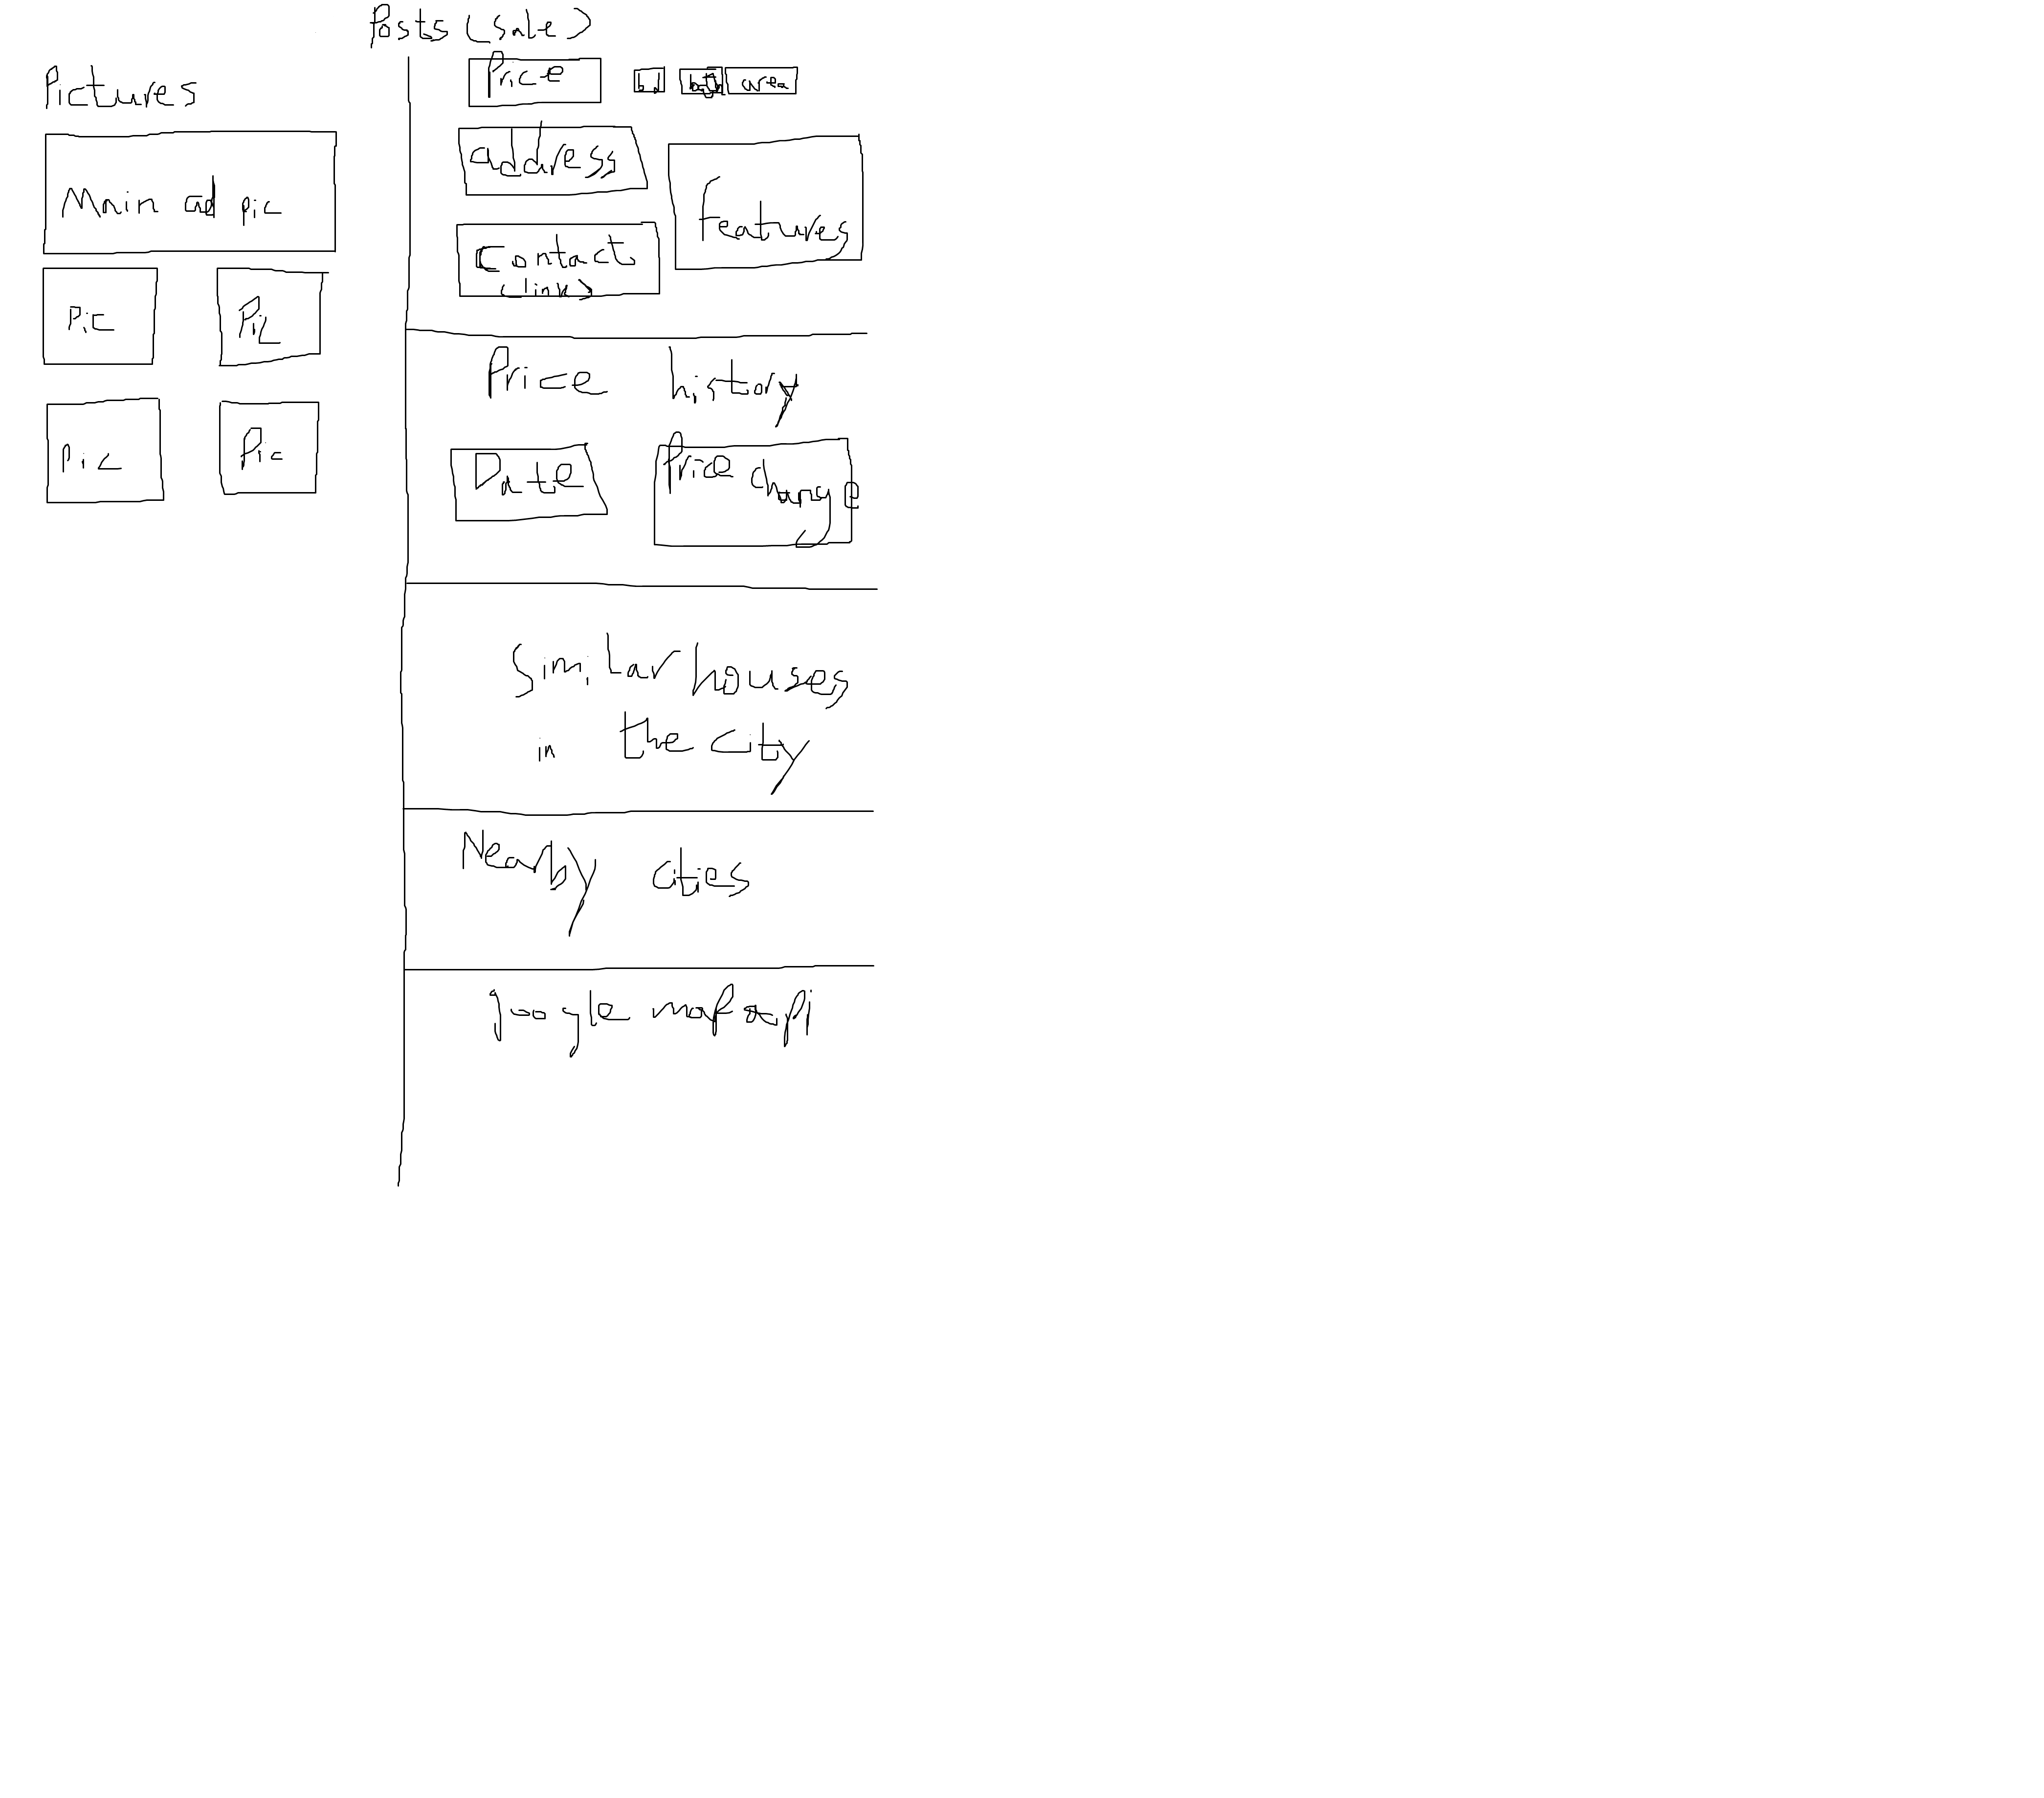 Posts (sale)
Pictures
Main ad pic
Pic
Pic
Pic
Pic
Price
bd
bath
area
address
features
Contact
(link)
Price history
Date
Price change
Similar houses
in the city
Nearby cities
google map api